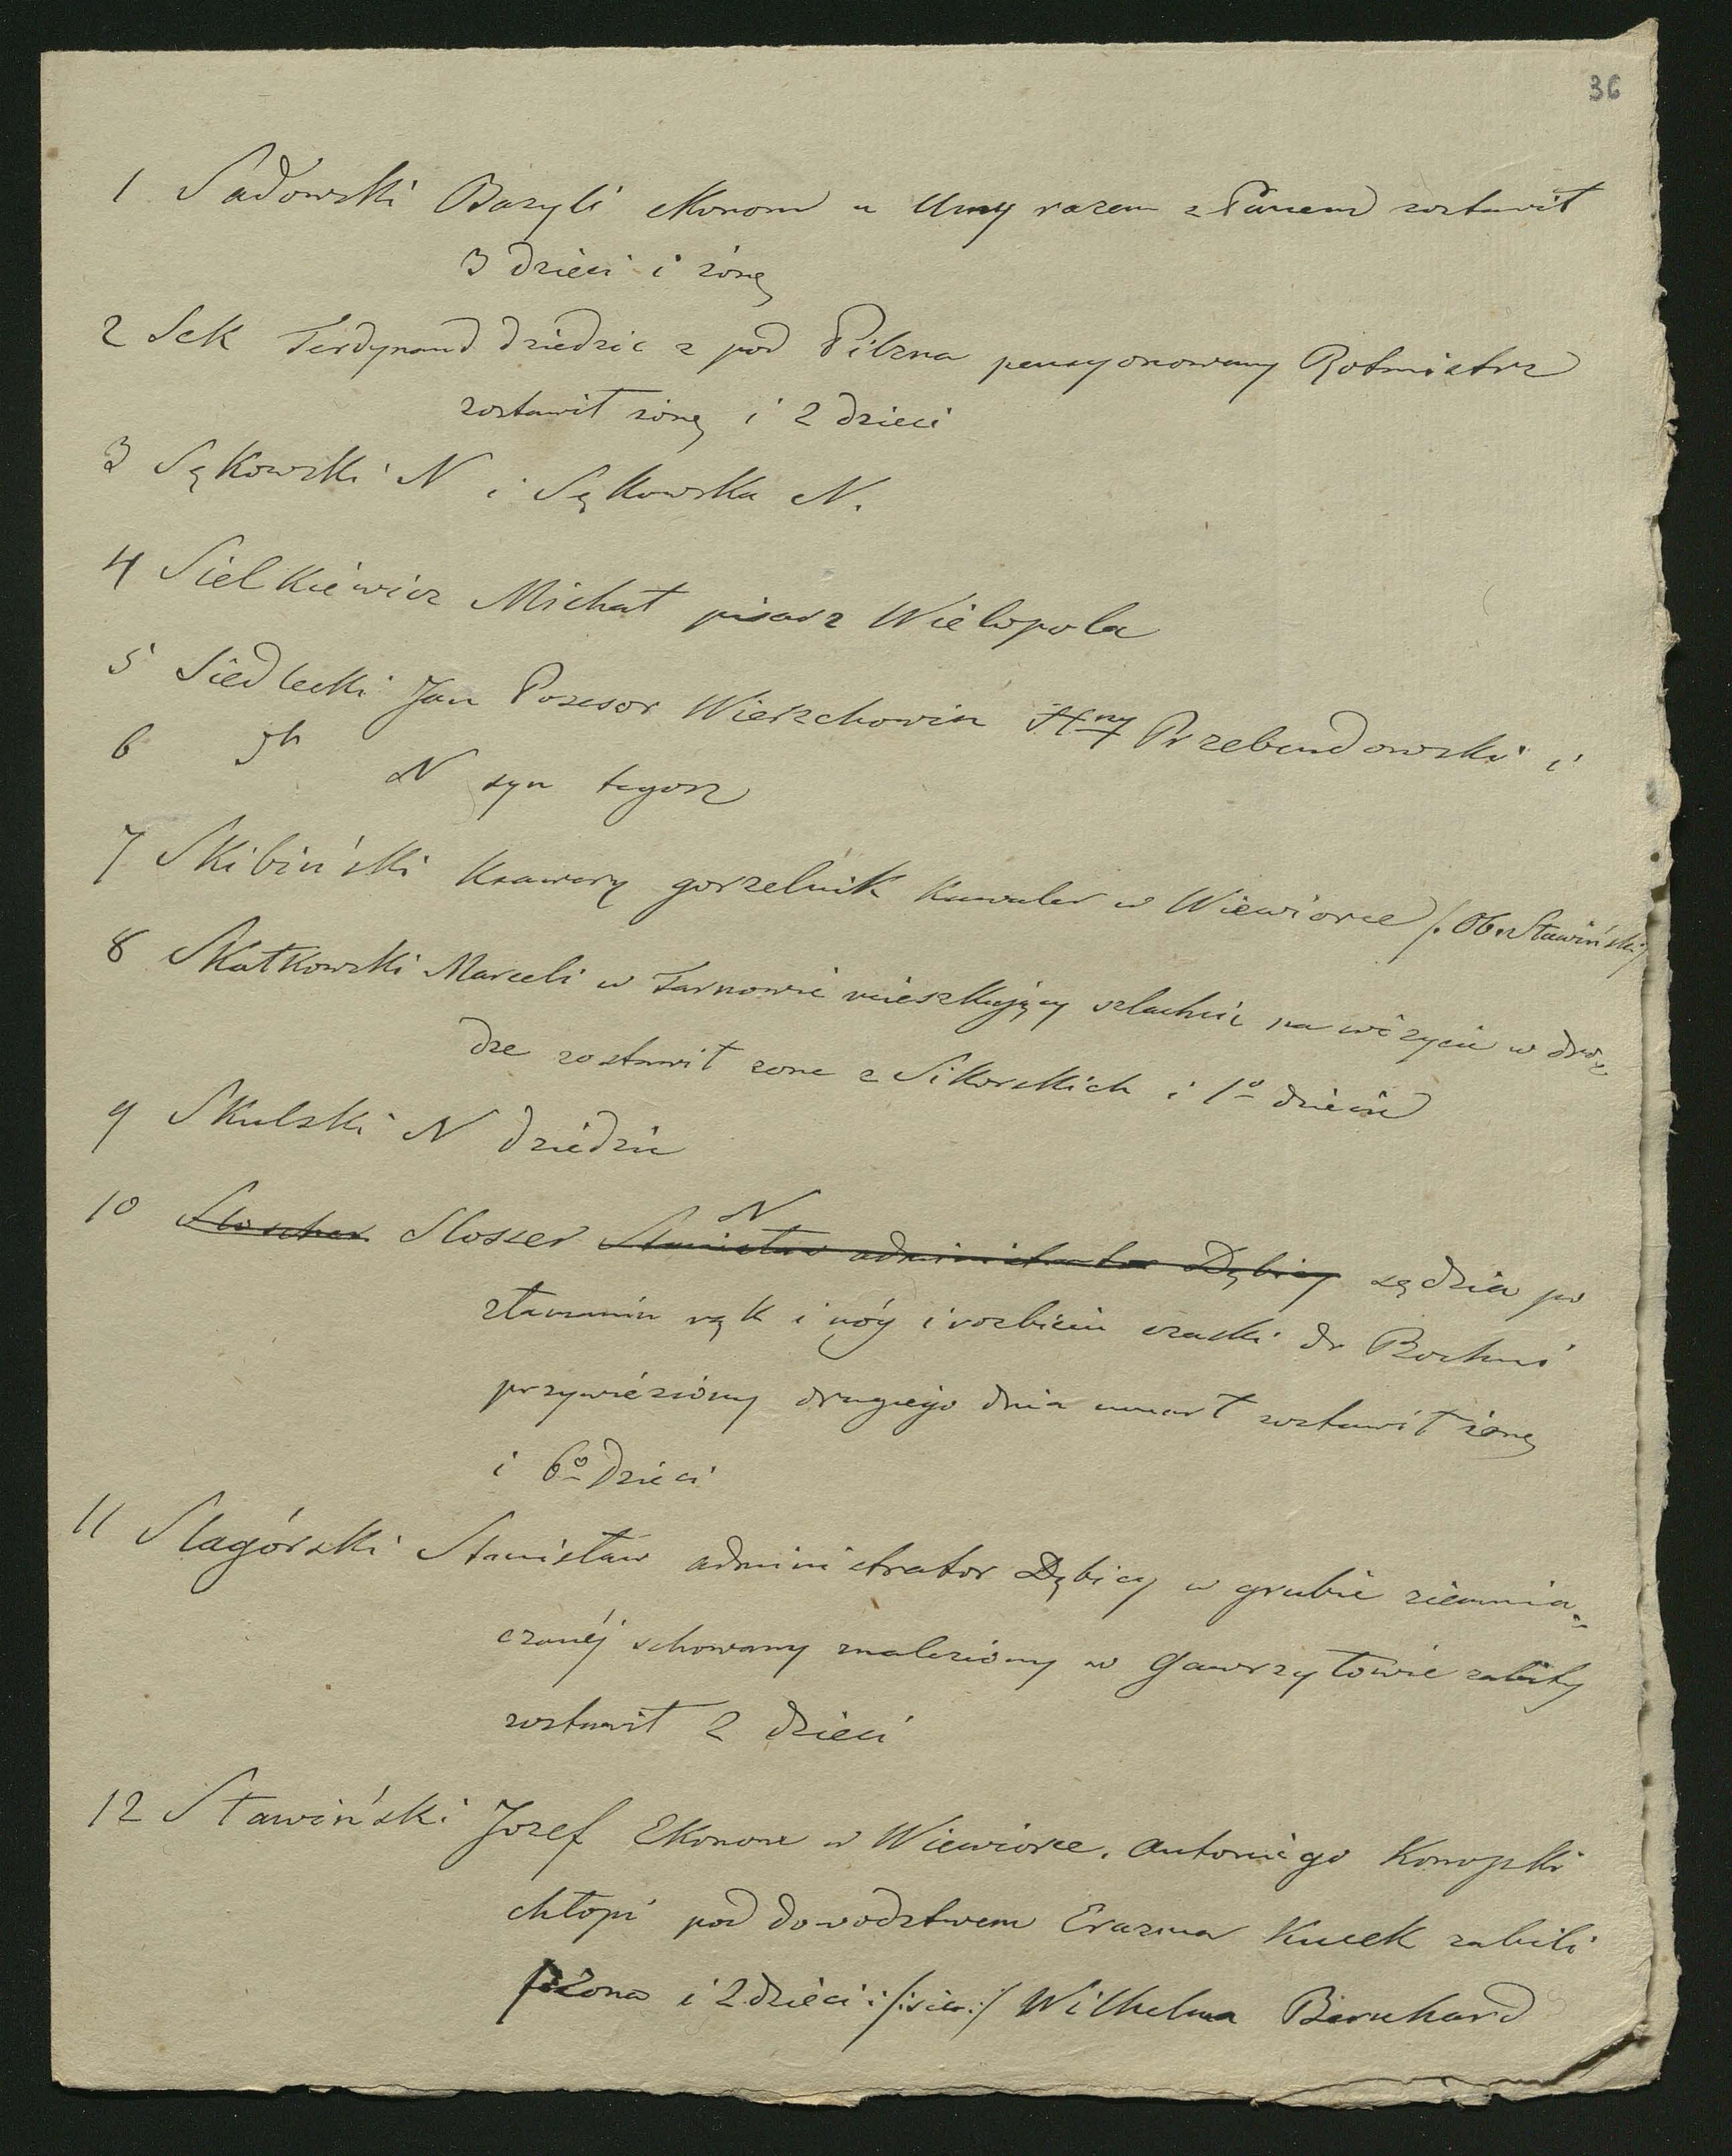 36
1 Sadowski Bazyli ekonom u Umy razem z Panem zostawił
3 dzieci i żonę
2 Sek Ferdynand dziedzic z pod Pilzna pensyonowany Rotmistrz
zostawił żonę i 2 dzieci
3 Sękowski N i Sękowska N.
4 Sielkiewicz Michał pisarz Wielopola
5 Siedlecki Jan Posesor Wierzchowin Hny Przebendowski i
6 N syn tegoż
7 Skibiński Ksawery gorzelnik kawaler w Wiewiorce /. Ob. Sławiński /
8 Skałkowski Marceli w Tarnowie mieszkający szlachcic na wizycie w dro-
dze zostawił zone z Sikorskich i 1º dziecie
9 Skulski N dziedzic
10 Sloscher Slosser Stanisław administrator Dębicy N sędzia po
złamaniu rąk i nóg i rozbiciu czaski do Bochni
przywieziony drugiego dnia umarł zostawił żonę
i 6º dzieci
11 Slagórski Stanisław administrator Dębicy w grubie ziemnia-
czanéj schowany znaleziony w Gawrzyłowie zabity
zostawił 2 dzieci
12 Sławiński Jozef Ekonom w Wiewiorce. Antoniego Konopki
chłopi pod dowodztwem Erazma Kucek zabili
żona i 2 dzieci :/: :/ Wilhelma Bernhard